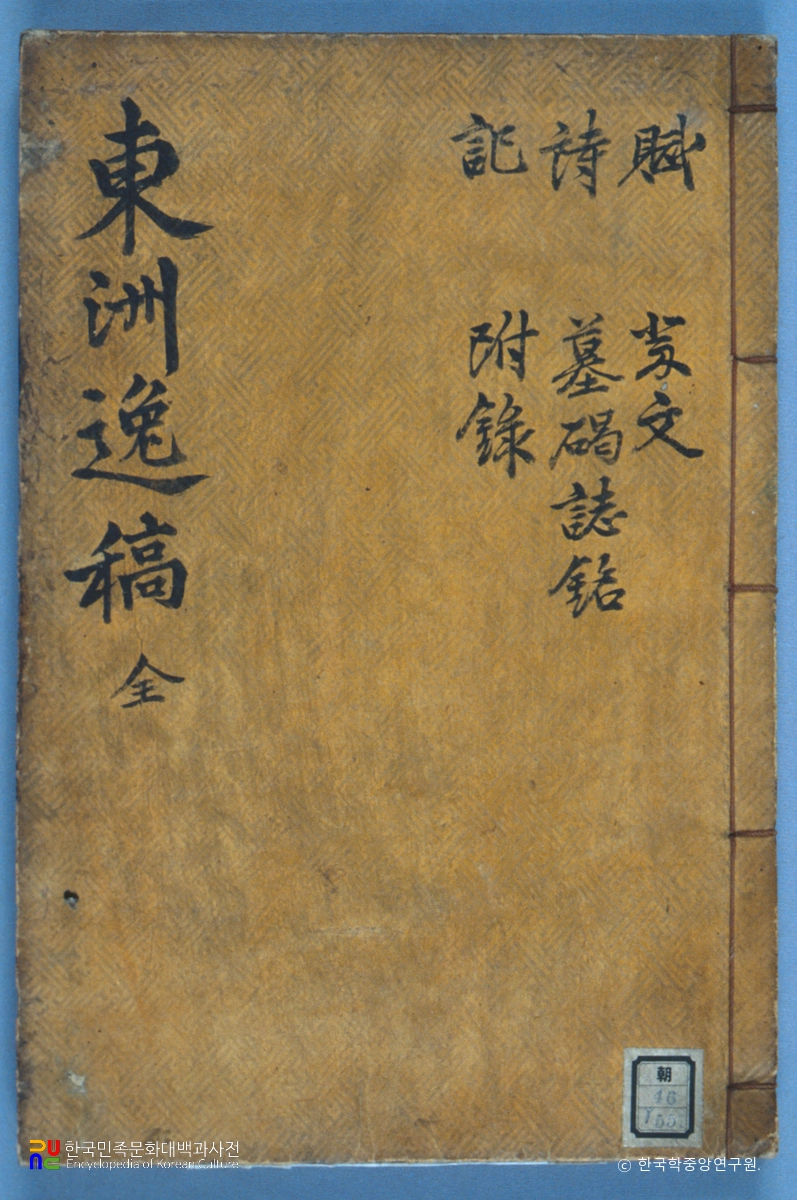 賦
詩
記
祭文
墓碣誌銘
附錄
東洲逸稿 全
朝
46
55
한국민족문화대백과사전
Encyclopedia of Korean Culture
© 한국학중앙연구원.